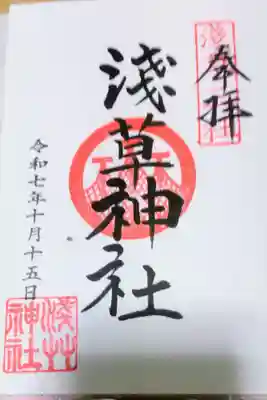 奉拝
淺草神社
令和七年十月十五日
淺草
神社